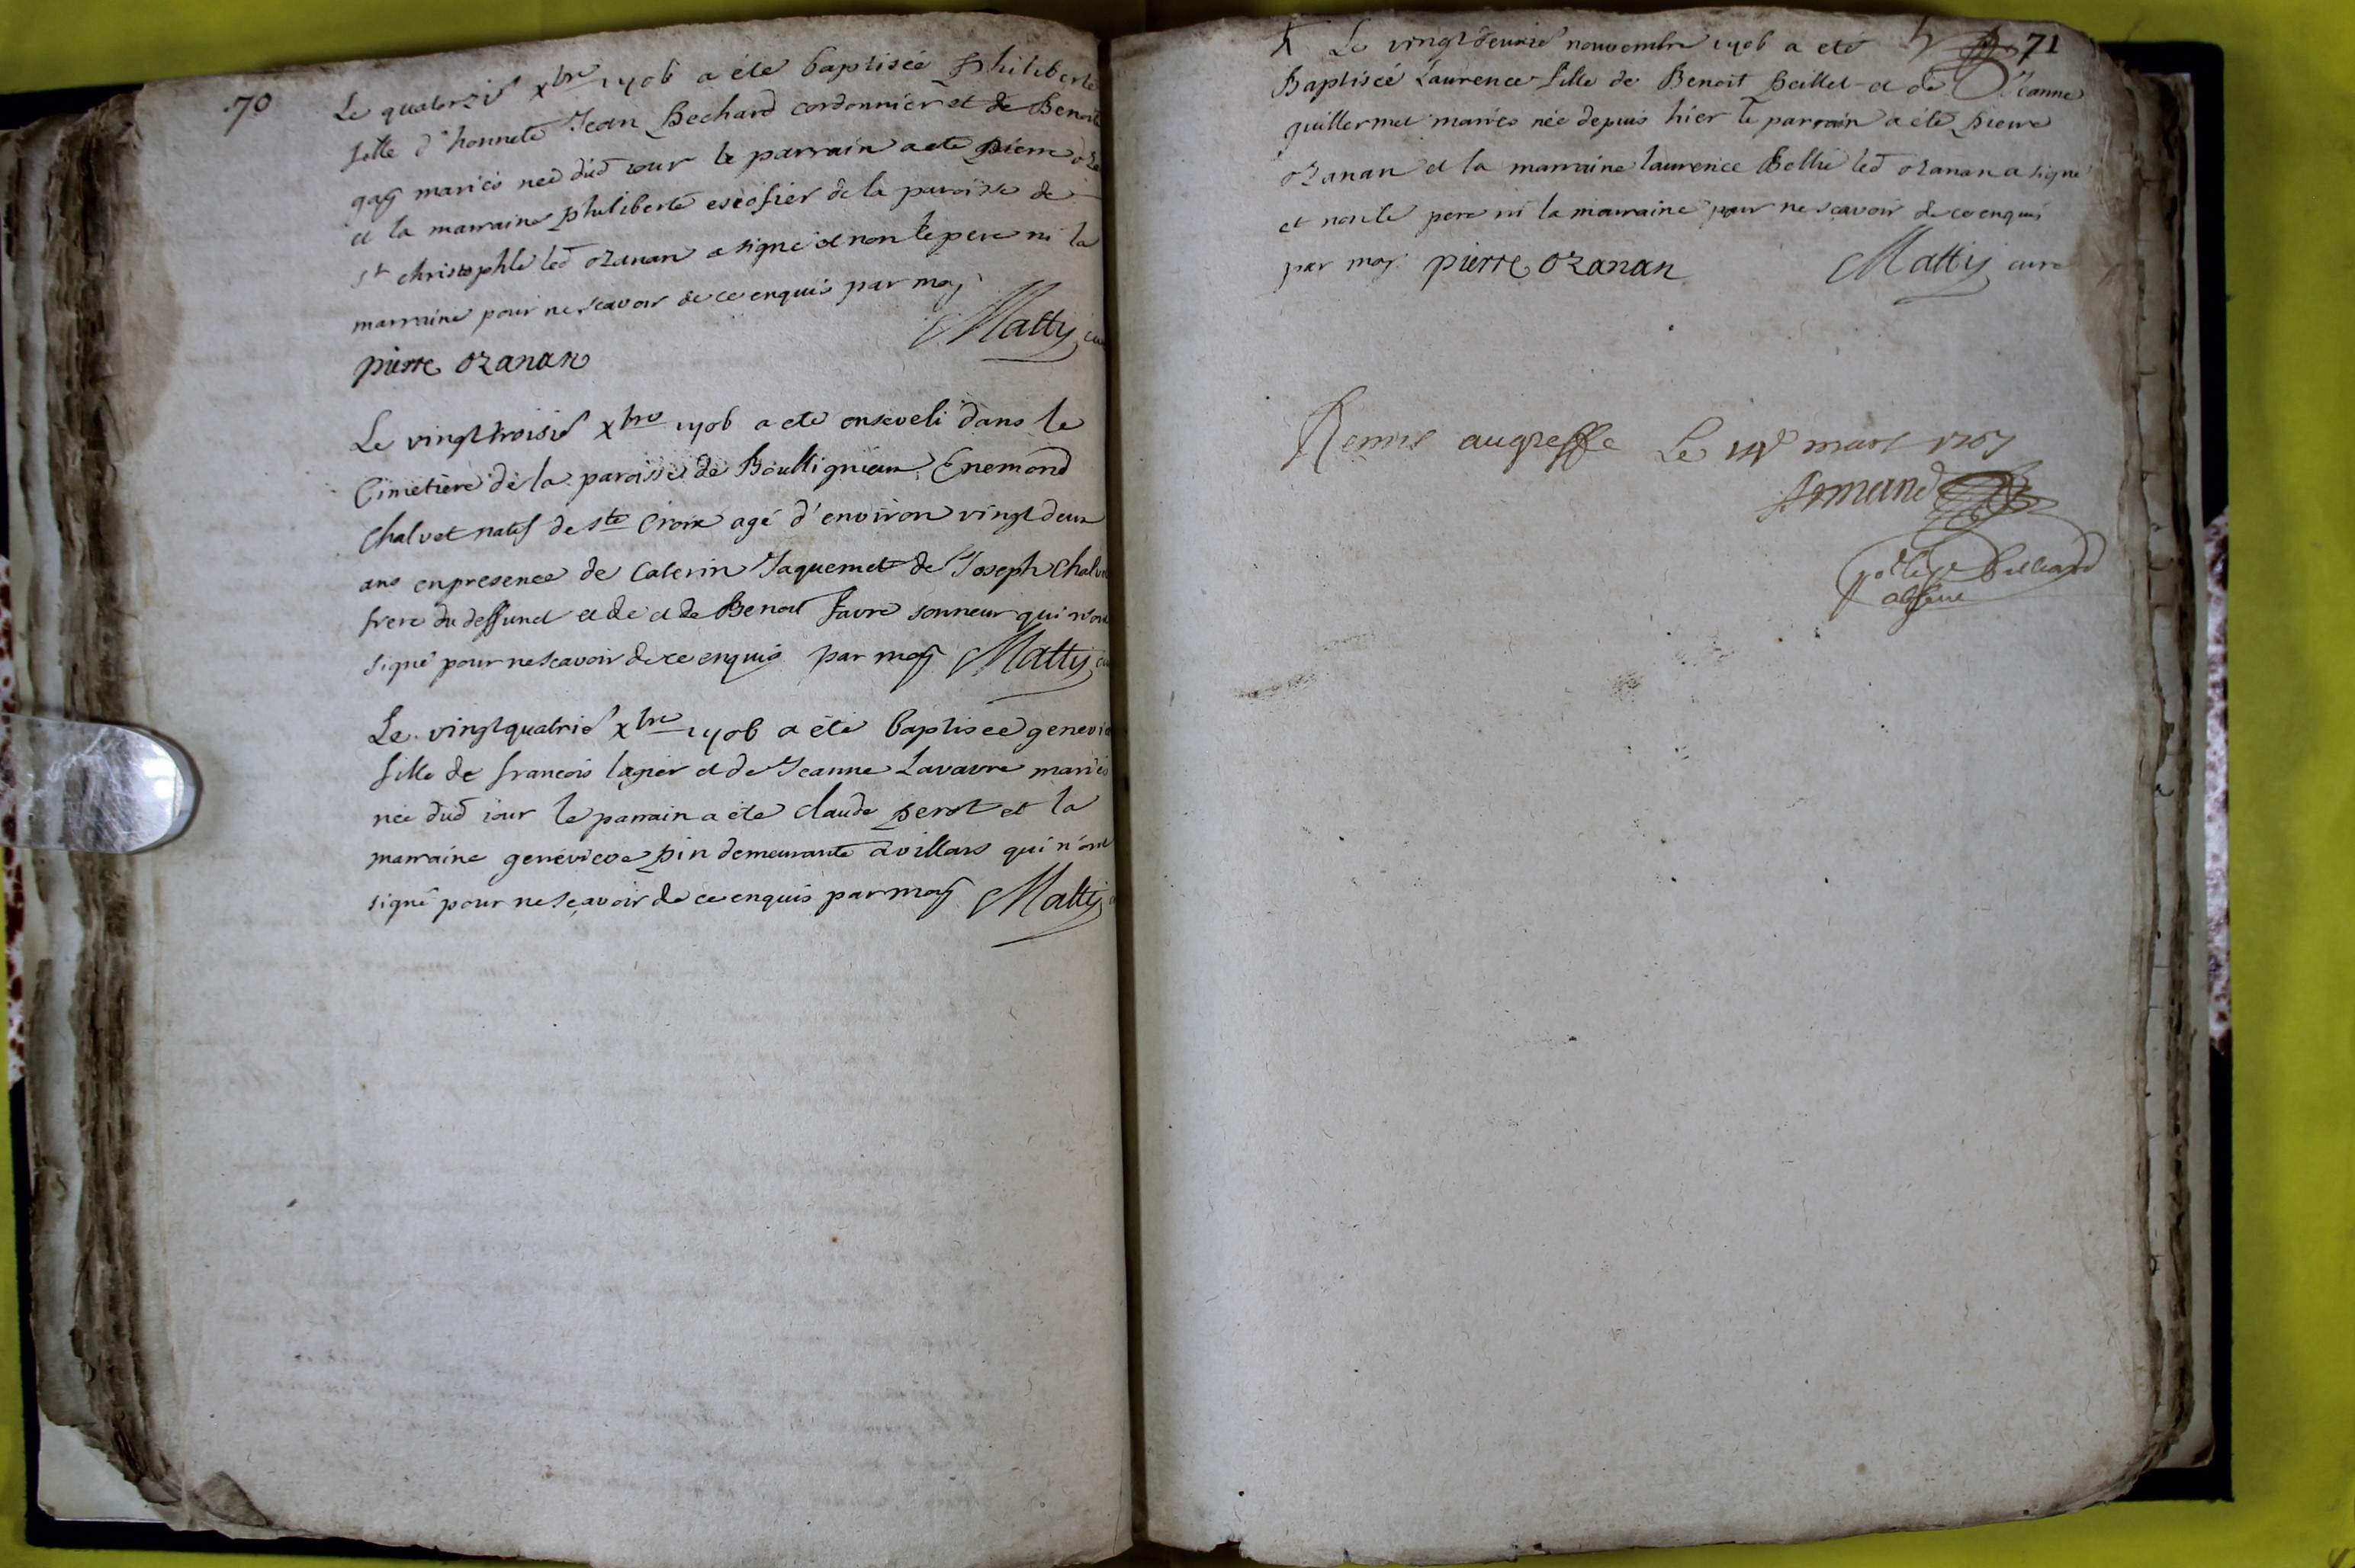 70
Le quatorzie xbre 1706 a été baptisée Philiberte
fille d'honnete Jean Bechard cordonnier et de Benoit
gay mariés née dud jour le parrain a ete pierre oza
et la marraine philiberte escofier de la paroisse de
st christophle led ozanan a signé et non le pere ni la
marraine pour ne scavoir de ce enquis par moy
Matty cu
pierre ozanan
Le vingt troisie xbre 1706 a ete enseveli dans le
Cimetiere de la paroisse de Boulligneux Enemond
Chalvet natif de ste Croix agé d'environ vingt deux
ans en presence de Caterin Jaquemet de Joseph Chalv
frere du deffunct et de et de Benoit favre sonneur qui n'ont
signé pour ne scavoir de ce enquis par moy Matty cu
Le vingt quatrie xbre 1706 a été baptisée genevie
fille de francois lagier et de Jeanne Lavavre mariés
née dud jour le parrain a été claude perot et la
marraine genevieve pin demeurante a villars qui n'ont
signé pour ne sçavoir de ce enquis par moy Matty
71
Le vingt deuxie nouvembre 1706 a eté
Baptisée Laurence fille de Benoit peillet et de Jeanne
guillermet mariés née depuis hier le parrain a été pierre
ozanan et la marraine laurence Bollie led ozanan a signé
et non le pere ni la marraine pour ne sçavoir de ce enquis
par moy pierre ozanan Matty curé
Remis au greffe Le mars 1707
Armand
absence